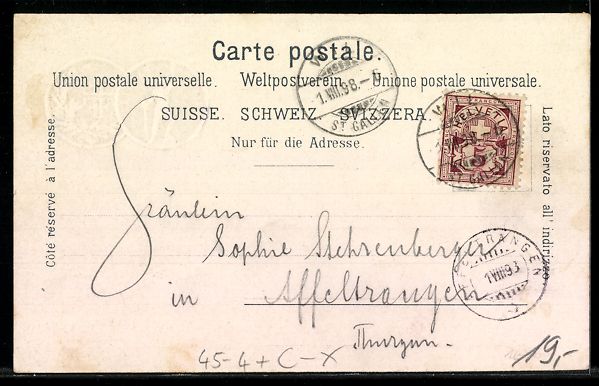 Carte postale.
Union postale universelle. Weltpostverein. Unione postale universale.
SUISSE. SCHWEIZ. SVIZZERA.
Nur für die Adresse.
Côté réservé à l'adresse.
Lato riservato all' indirizzo.
1.VIII.98.-5
ST GALLEN
HELVETIA
ST GALLEN
Fräulein
Sophie Stehrenberger
in Affeltrangen
Thurgau.
AFFELTRANGEN
1.VIII.93
45-4+C-X
19,-